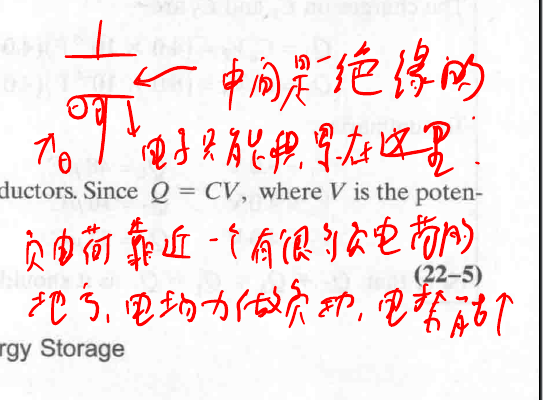 中间是绝缘的
电子只能积累在这里.
ductors. Since Q = CV, where V is the poten-
负电荷靠近一个有很多负电荷的
(22–5)
地方, 电场力做负功, 电势能↑
rgy Storage